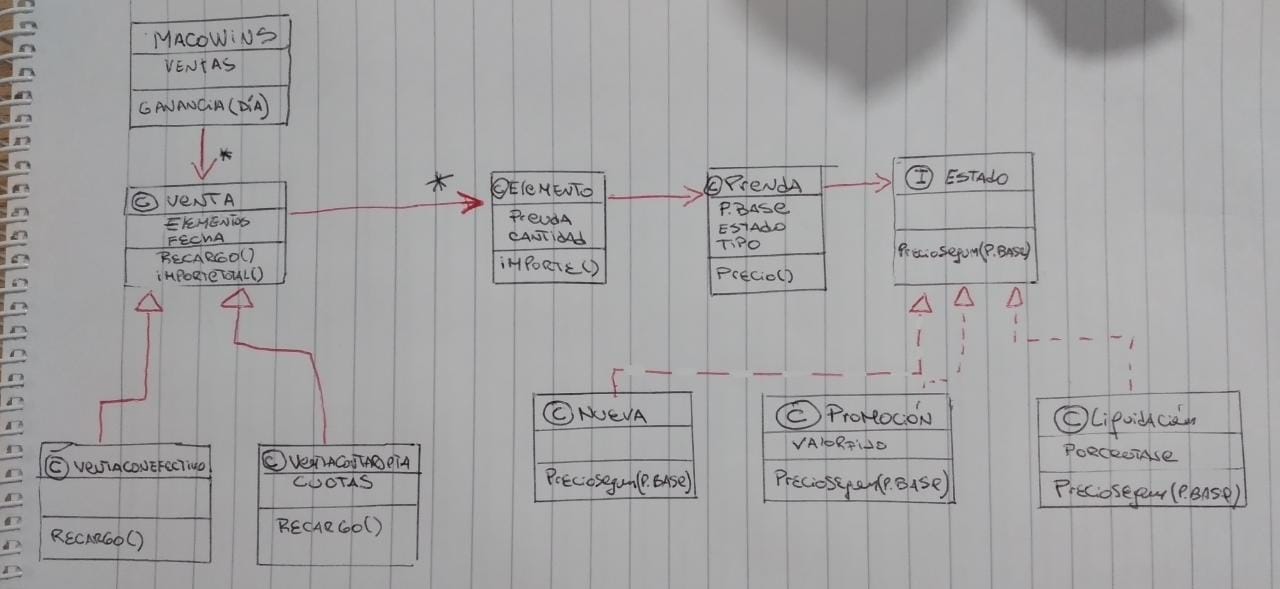 MACOWINS
VENTAS
GANANCIA(DÍA)
*
C VENTA
ELEMENTOS
FECHA
RECARGO()
IMPORTETOTAL()
*
C ELEMENTO
PRENDA
CANTIDAD
IMPORTE()
C PRENDA
P.BASE
ESTADO
TIPO
PRECIO()
I ESTADO
PRECIOSEGUN(P.BASE)
C VENTACONEFECTIVO
RECARGO()
C VENTACONTARJETA
CUOTAS
RECARGO()
C NUEVA
PRECIOSEGUN(P.BASE)
C PROMOCIÓN
VALORFIJO
PRECIOSEGUN(P.BASE)
C LIQUIDACIÓN
PORCENTAJE
PRECIOSEGUN(P.BASE)